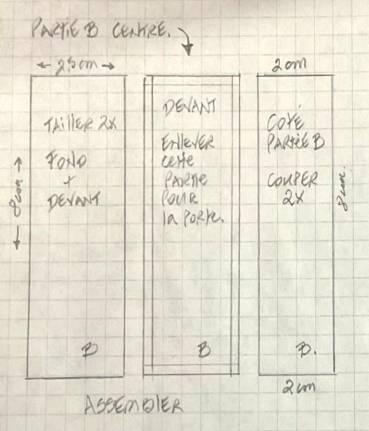 PARTIE B CENTRE.
2.5cm
TAILLER 2X
FOND
+
DEVANT
8cm
B
DEVANT
ENLEVER
CETTE
PARTIE
POUR
la PORTE.
B
2cm
COTÉ
PARTIE B
COUPER
2X
8cm.
B.
2cm
ASSEMBLER